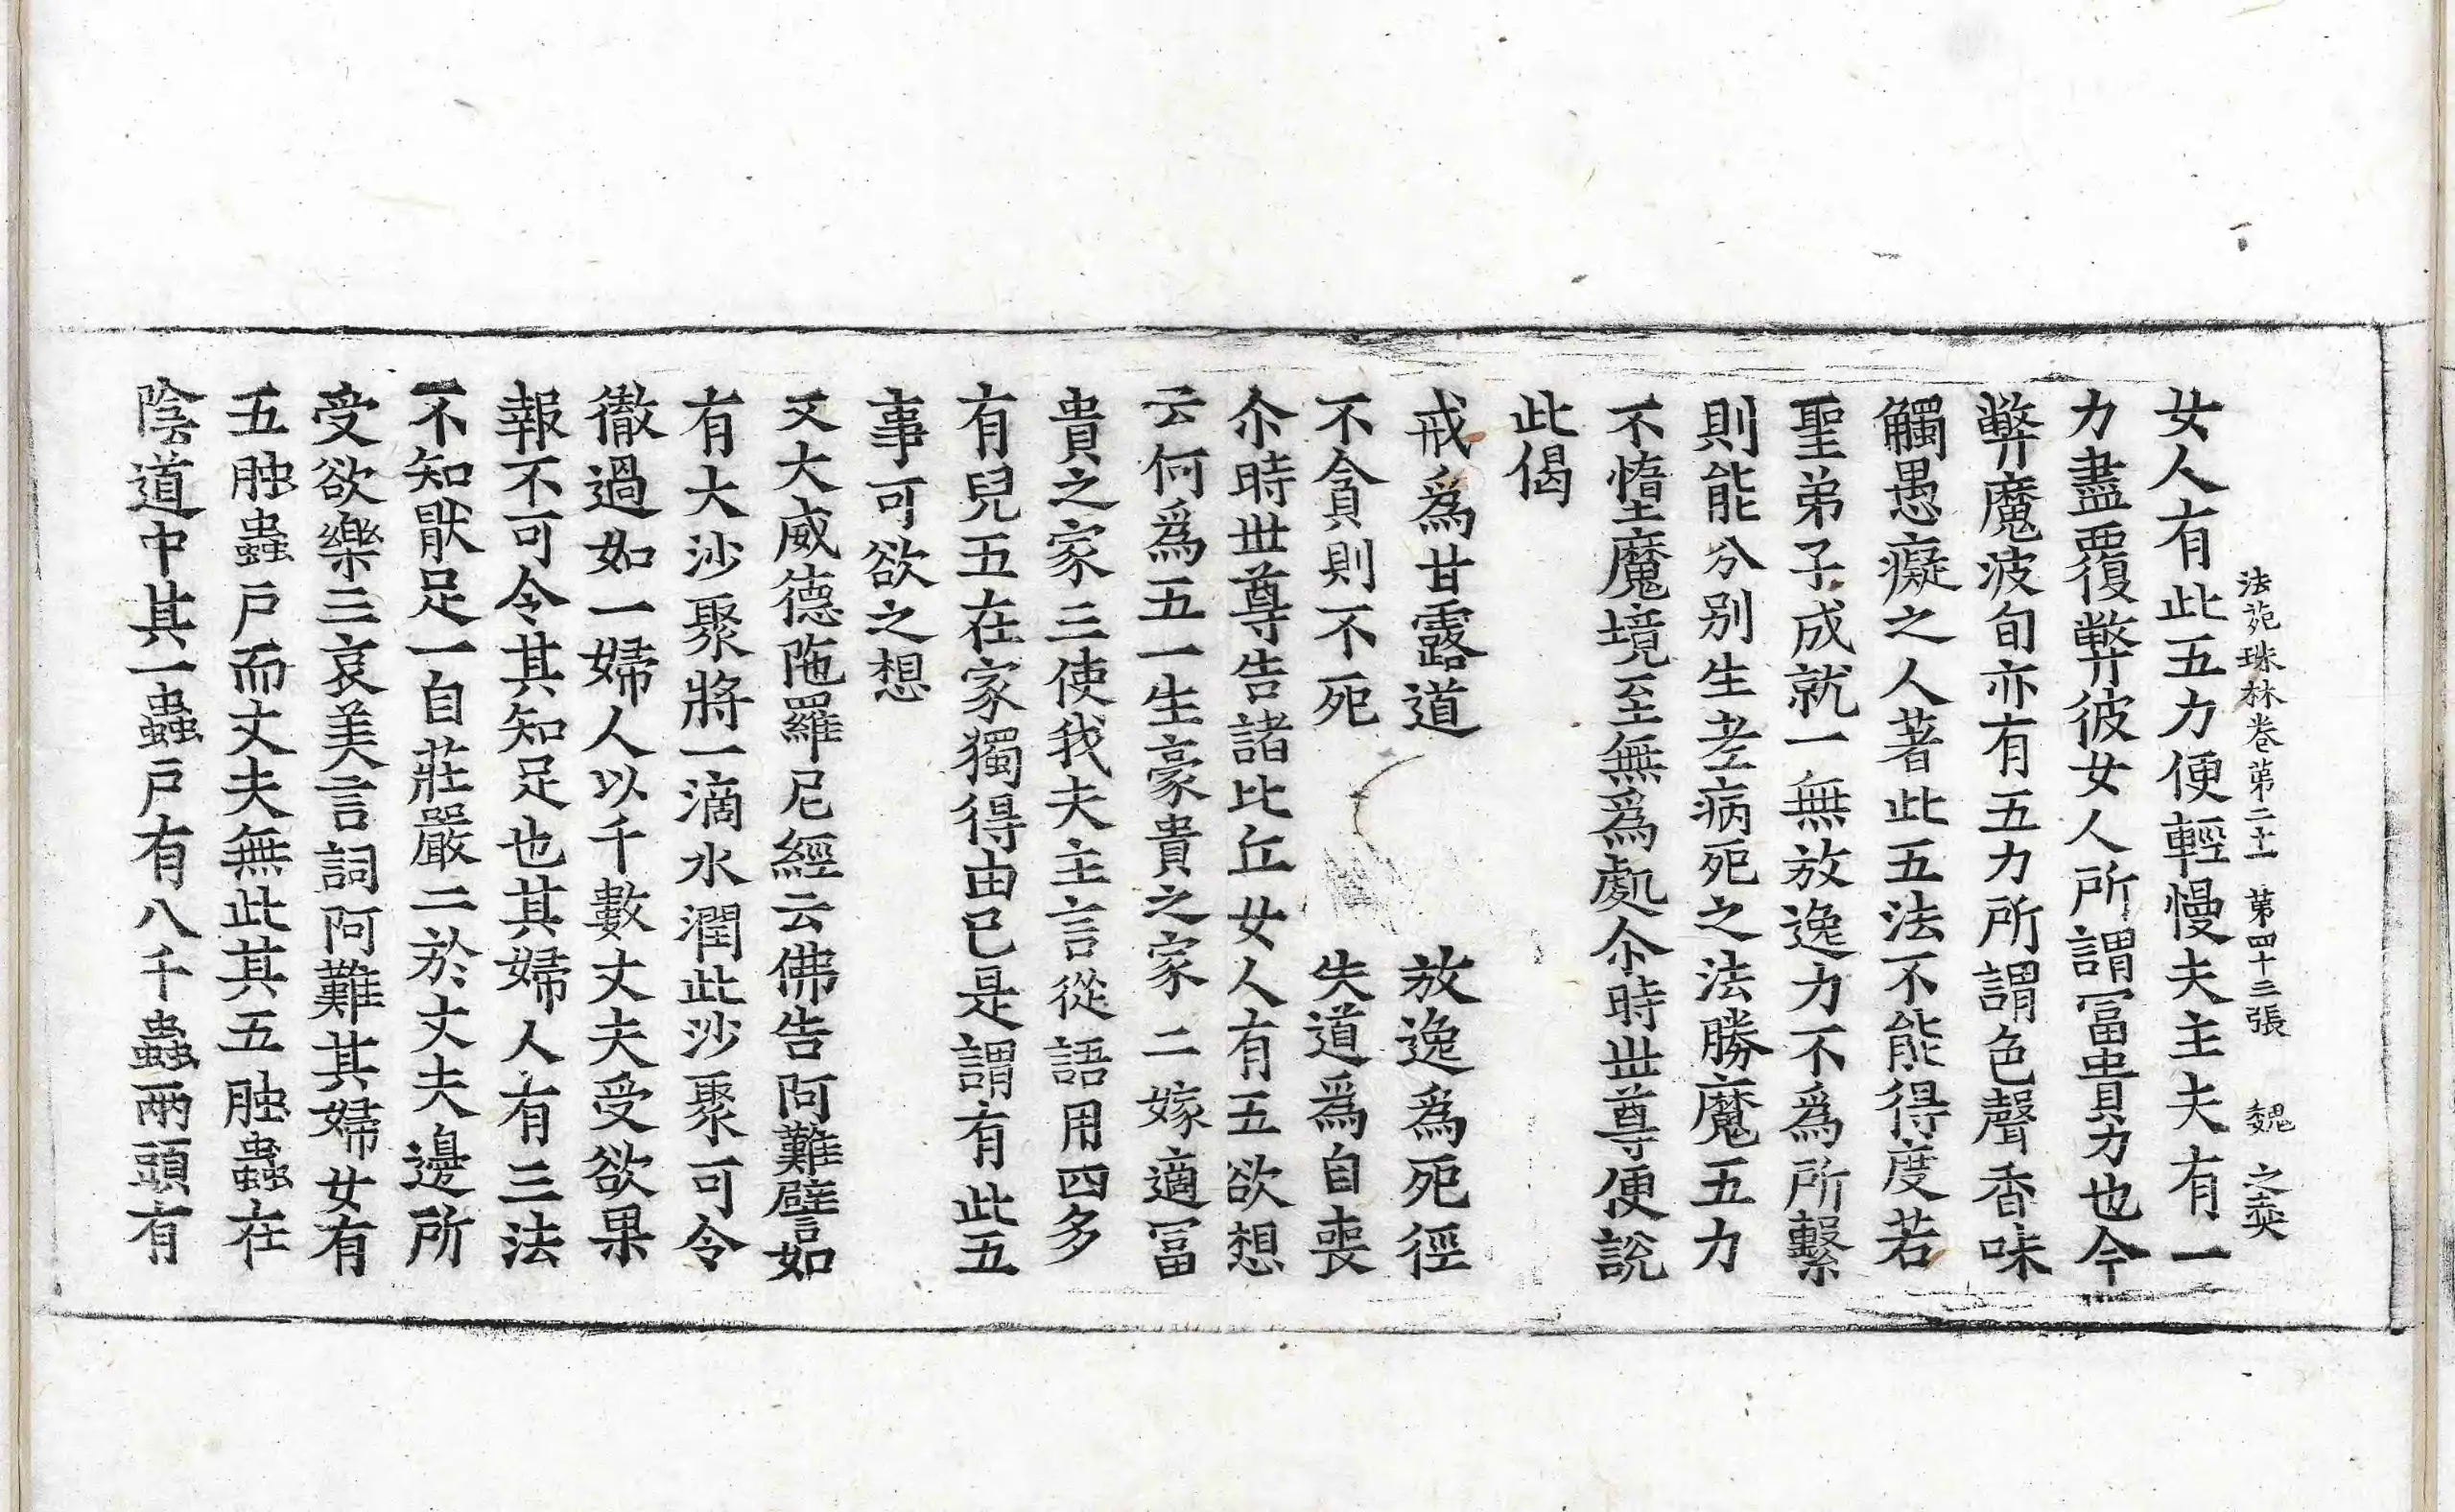 法苑珠林卷第二十一　第四十三張　魏　之奕
女人有此五力便輕慢夫主夫有一
力盡覆弊彼女人所謂冨貴力也今
弊魔波旬亦有五力所謂色聲香味
觸愚癡之人著此五法不能得度若
聖弟子成就一無放逸力不為所繫
則能分别生老病死之法勝魔五力
不墮魔境至無為處尒時世尊便說
此偈
戒為甘露道　放逸為死徑
不貪則不死　失道為自喪
尒時世尊告諸比丘女人有五欲想
云何為五一生豪貴之家二嫁適冨
貴之家三使我夫主言從語用四多
有兒五在家獨得由已是謂有此五
事可欲之想
又大威德陁羅尼經云佛告阿難譬如
有大沙聚將一滴水潤此沙聚可令
徹過如一婦人以千數丈夫受欲果
報不可令其知足也其婦人有三法
不知猒足一自莊嚴二於丈夫邊所
受欲樂三哀美言詞阿難其婦女有
五䏰蟲戶而丈夫無此其五䏰蟲在
陰道中其一蟲戶有八千蟲兩頭有